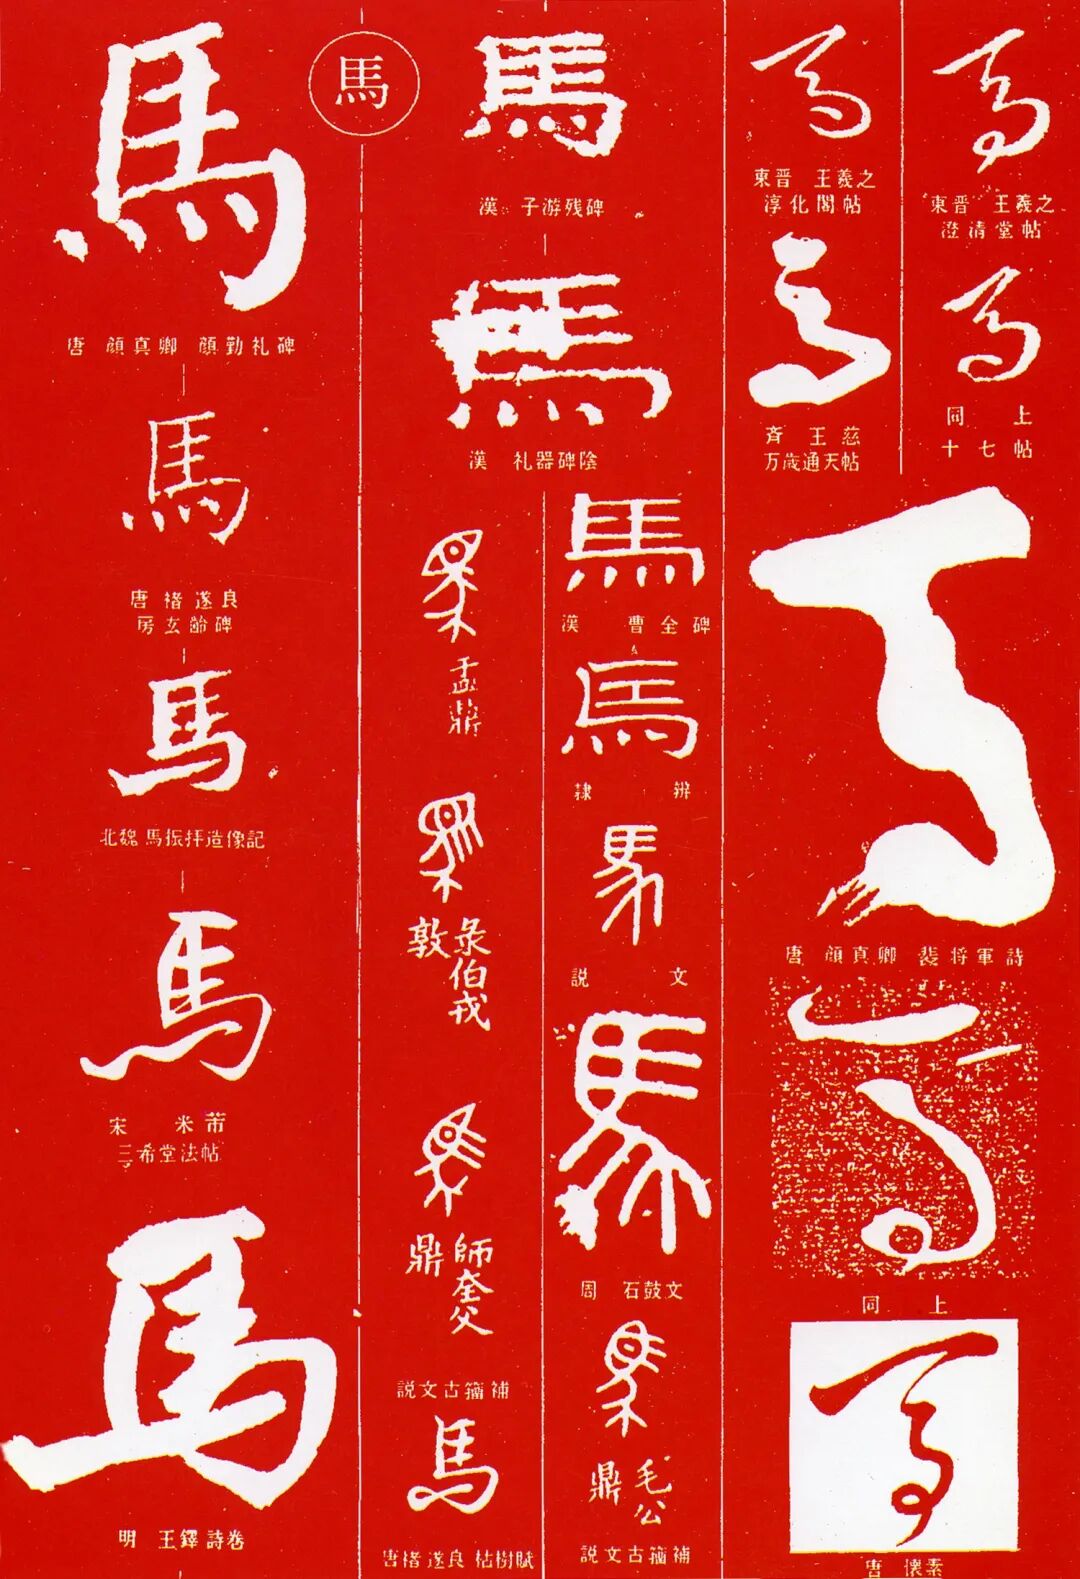 馬
馬
唐 顔真卿 顔勤礼碑
馬
唐 褚遂良
房玄齢碑
馬
北魏 馬振拝造像記
馬
宋 米芾
三希堂法帖
馬
明 王鐸 詩巻
馬
漢 子游残碑
馬
漢 礼器碑陰
馬
盂鼎
馬
彔伯戎
敦
馬
師奎父
鼎
説文古籀補
馬
唐 褚遂良 枯樹賦
馬
漢 曹全碑
馬
隷辨
馬
説文
馬
周 石鼓文
馬
毛公
鼎
説文古籀補
馬
東晋 王羲之
淳化閣帖
馬
斉 王慈
万歳通天帖
馬
東晋 王羲之
澄清堂帖
馬
同上
十七帖
馬
唐 顔真卿 裴将軍詩
馬
同上
馬
唐 懐素